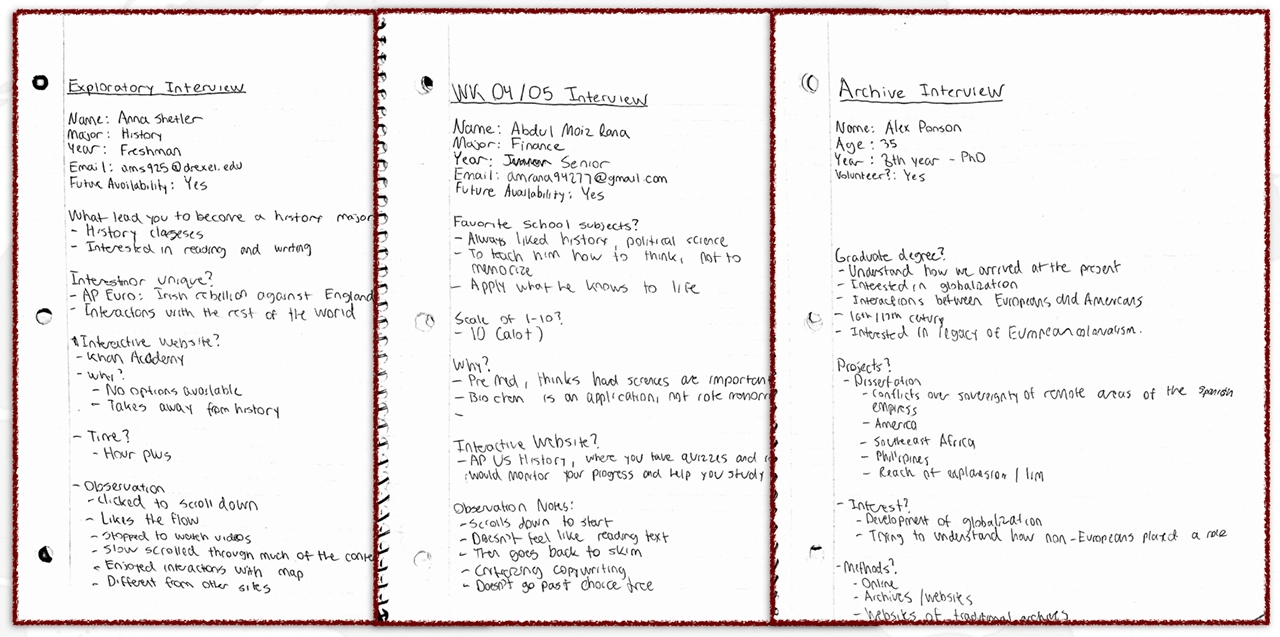 Exploratory Interview
Name: Anna Shetler
Major: History
Year: Freshman
Email: ams925@drexel.edu
Future Availability: Yes
What lead you to become a history major
- History classes
- Interested in reading and writing
unique?
- AP Euro: Irish rebellion against England
- Interactions with the rest of the world
Interactive Website?
- Khan Academy
- Why?
- No options available
- Takes away from history
- Time?
- Hour plus
- Observation
- Clicked to scroll down
- Likes the flow
- Stopped to watch videos
- Slow scrolled through much of the conte
- Enjoyed interactions with map
- Different from other sites
WK 04/05 Interview
Name: Abdul Moiz Rana
Major: Finance
Year: Senior
Email: amrana94277@gmail.com
Future Availability: Yes
Favorite School subjects?
- Always liked history, political science
- To teach him how to think, not to
memorize
- Apply what he knows to life
Scale of 1-10?
- 10 (alot)
Why?
- Pre Med, thinks hard sciences are importan
- Bio chem is an application, not rote
-
Interactive Website?
- AP US History, where you take quizzes and
would monitor your progress and help you study
Observation Notes:
- Scrolls down to start
- Doesn't feel like reading text
- Then goes back to skim
- Critizing copywriting
- Doesn't go past choice tree
Archive Interview
Name: Alex Ponson
Age: 35
Year: 8th year - PhD
Volunteer?: Yes
Graduate degree?
- Understand how we arrived at the present
- Interested in globalization
- Interactions between Europeans and Americans
- 16th/17th
- Interested in legacy of European colonialism.
Projects?
- Dissertation
- Conflicts over sovereignty of remote areas of the Spanish
empires
- America
- Southeast Africa
- Philipines
- Reach of
- Interest?
- Development of globalization
- Trying to understand how non-Europeans played a role
- Methods?
- Online
- Archives/websites
- Websites of traditional archives